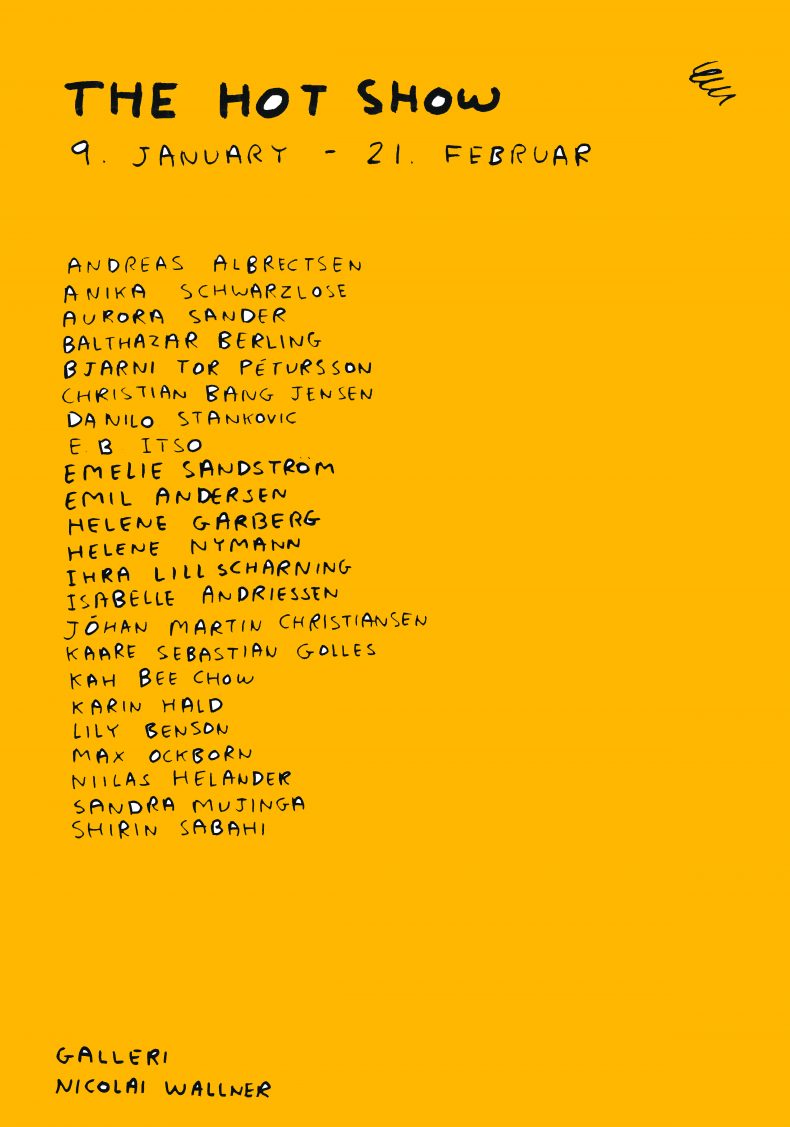 THE HOT SHOW
9. JANUARY - 21. FEBRUAR
ANDREAS ALBRECTSEN
ANIKA SCHWARZLOSE
AURORA SANDER
BALTHAZAR BERLING
BJARNI TOR PÉTURSSON
CHRISTIAN BANG JENSEN
DANILO STANKOVIC
E.B ITSO
EMELIE SANDSTRÖM
EMIL ANDERSEN
HELENE GARBERG
HELENE NYMANN
IHRA LILL SCHARNING
ISABELLE ANDRIESSEN
JÓHAN MARTIN CHRISTIANSEN
KAARE SEBASTIAN GOLLES
KAH BEE CHOW
KARIN HALD
LILY BENSON
MAX OCKBORN
NIILAS HELANDER
SANDRA MUJINGA
SHIRIN SABAHI
GALLERI
NICOLAI WALLNER